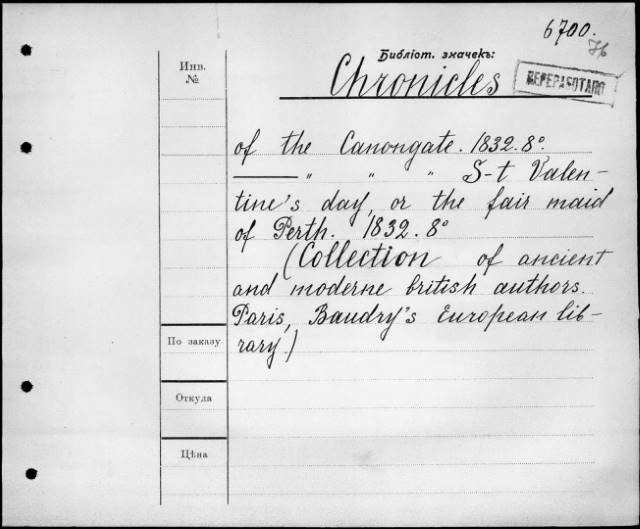 6700.
76
Библіот. значекъ:
Инв.
№
Chronicles
ПЕРЕРАБОТАНО
of the Canongate. 1832. 8°.
——— " " " S-t Valen-
tine's day, or the fair maid
of Perth. 1832. 8°
(Collection of ancient
and moderne british authors.
Paris, Baudry's European lib-
rary.)
По заказу
Откуда
Цѣна